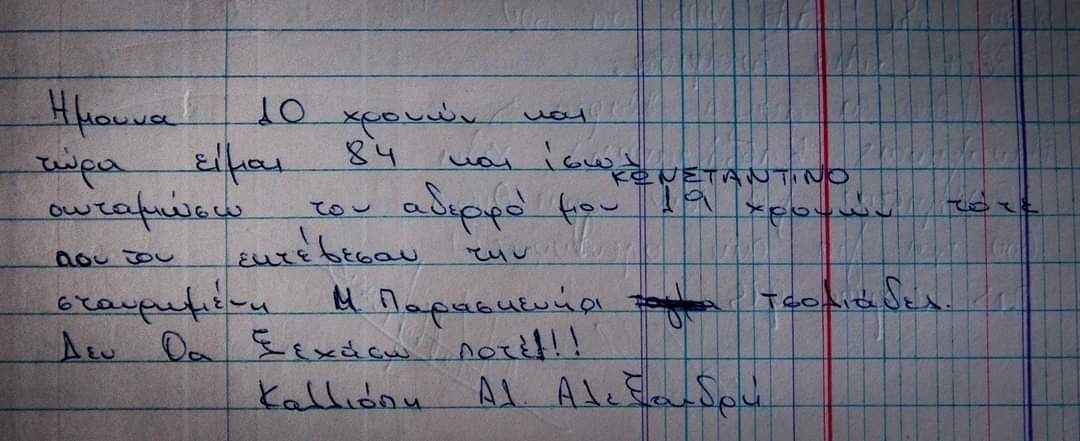 Ήμουνα 10 χρονών και
τώρα είμαι 84 και ίσως
ΚΟΝΣΤΑΝΤΙΝΟ
συταμώσω τον αδερφό μου 19 χρονών τότε
που τον εκτέλεσαν την
σταυρωμένη Μ. Παρασκευή οι τσολιάδες.
Δεν θα ξεχάσω ποτέ!!!
Καλλιόπη Αλ. Αλεξανδρή